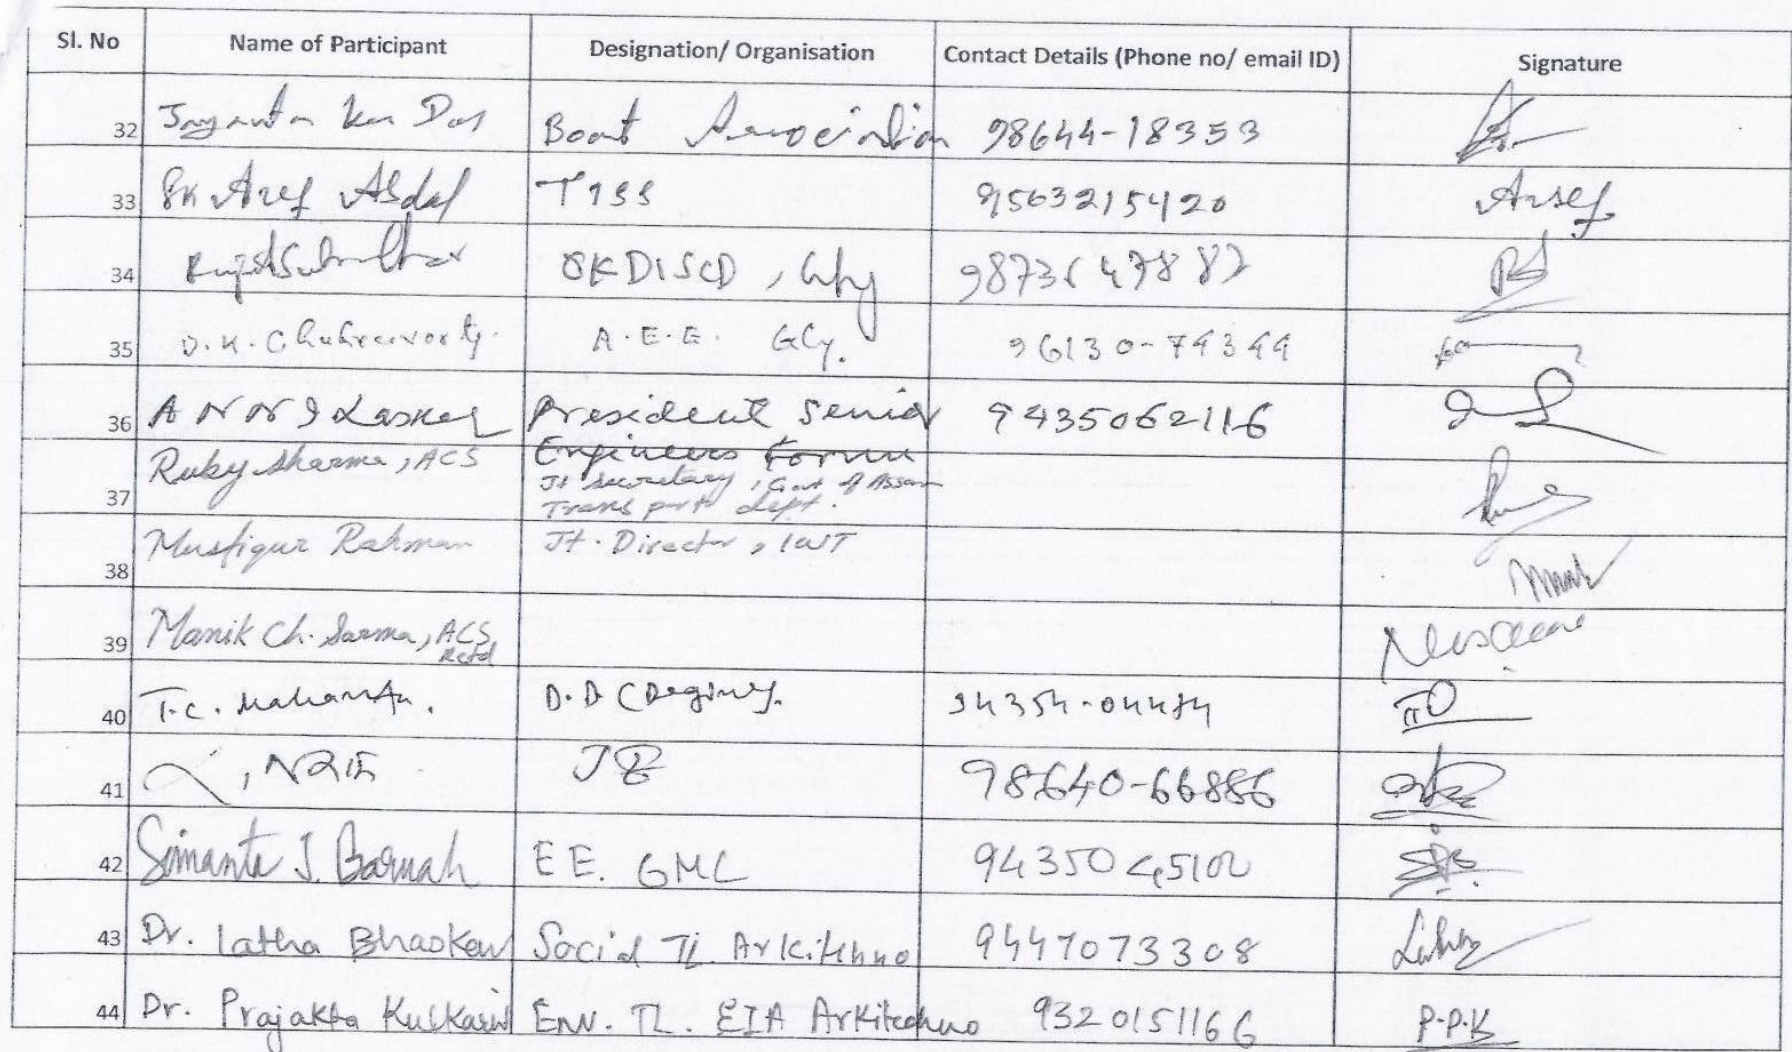 Sl. No Name of Participant Designation/ Organisation Contact Details (Phone no/ email ID) Signature
32 Jayanta Kr Das Boat Association 98644-18353
33 Sk Aref Abdal TISS 9563215420 Aref
34 OKDISCD, Ghy
35 D.K. Chakravorty. A.E.E. GCy. 96130-74344
36 A N N I Laskar President Senior 9435062116
Engineers Forum
37 Ruby Sharma, ACS Jt Secretary, Govt of Assam
Transport dept.
38 Musfiqur Rahman Jt. Director, IWT
39 Manik Ch. Sarma, ACS,
Retd
40 T.C. Mahanta. D.D
41 98640-66886
42 Simanta J. Baruah EE. GMC 9435045102
43 Dr. Latha Bhaskar Social TL. Arkitechno 9447073308
44 Dr. Prajakta Kulkarni Env. TL. EIA Arkitechno 9320151166 P.P.K